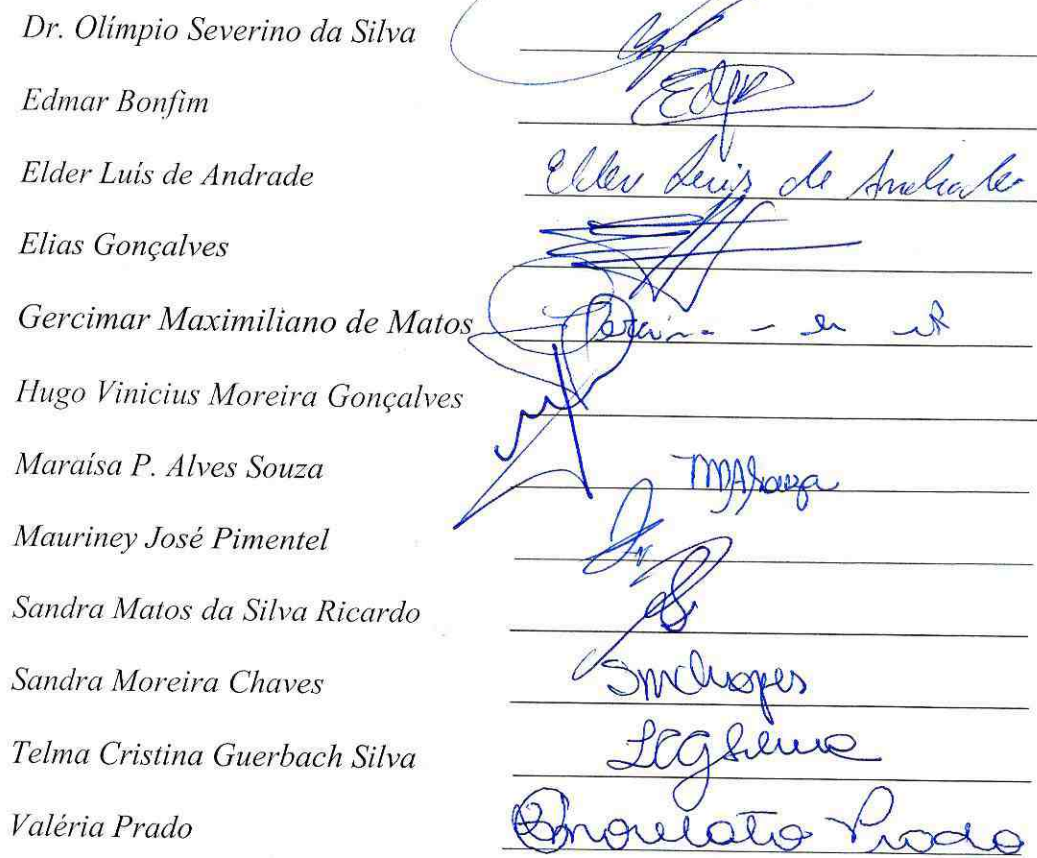 Dr. Olímpio Severino da Silva
Edmar Bonfim
Elder Luís de Andrade Elder Luis de Andrade
Elias Gonçalves
Gercimar Maximiliano de Matos
Hugo Vinicius Moreira Gonçalves
Maraísa P. Alves Souza MPASouza
Mauriney José Pimentel
Sandra Matos da Silva Ricardo
Sandra Moreira Chaves
Telma Cristina Guerbach Silva
Valéria Prado Prado